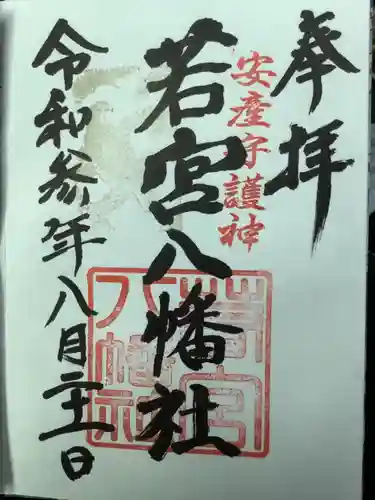 奉拝
安産守護神
若宮八幡社
若宮
八幡社
令和参年八月二十一日